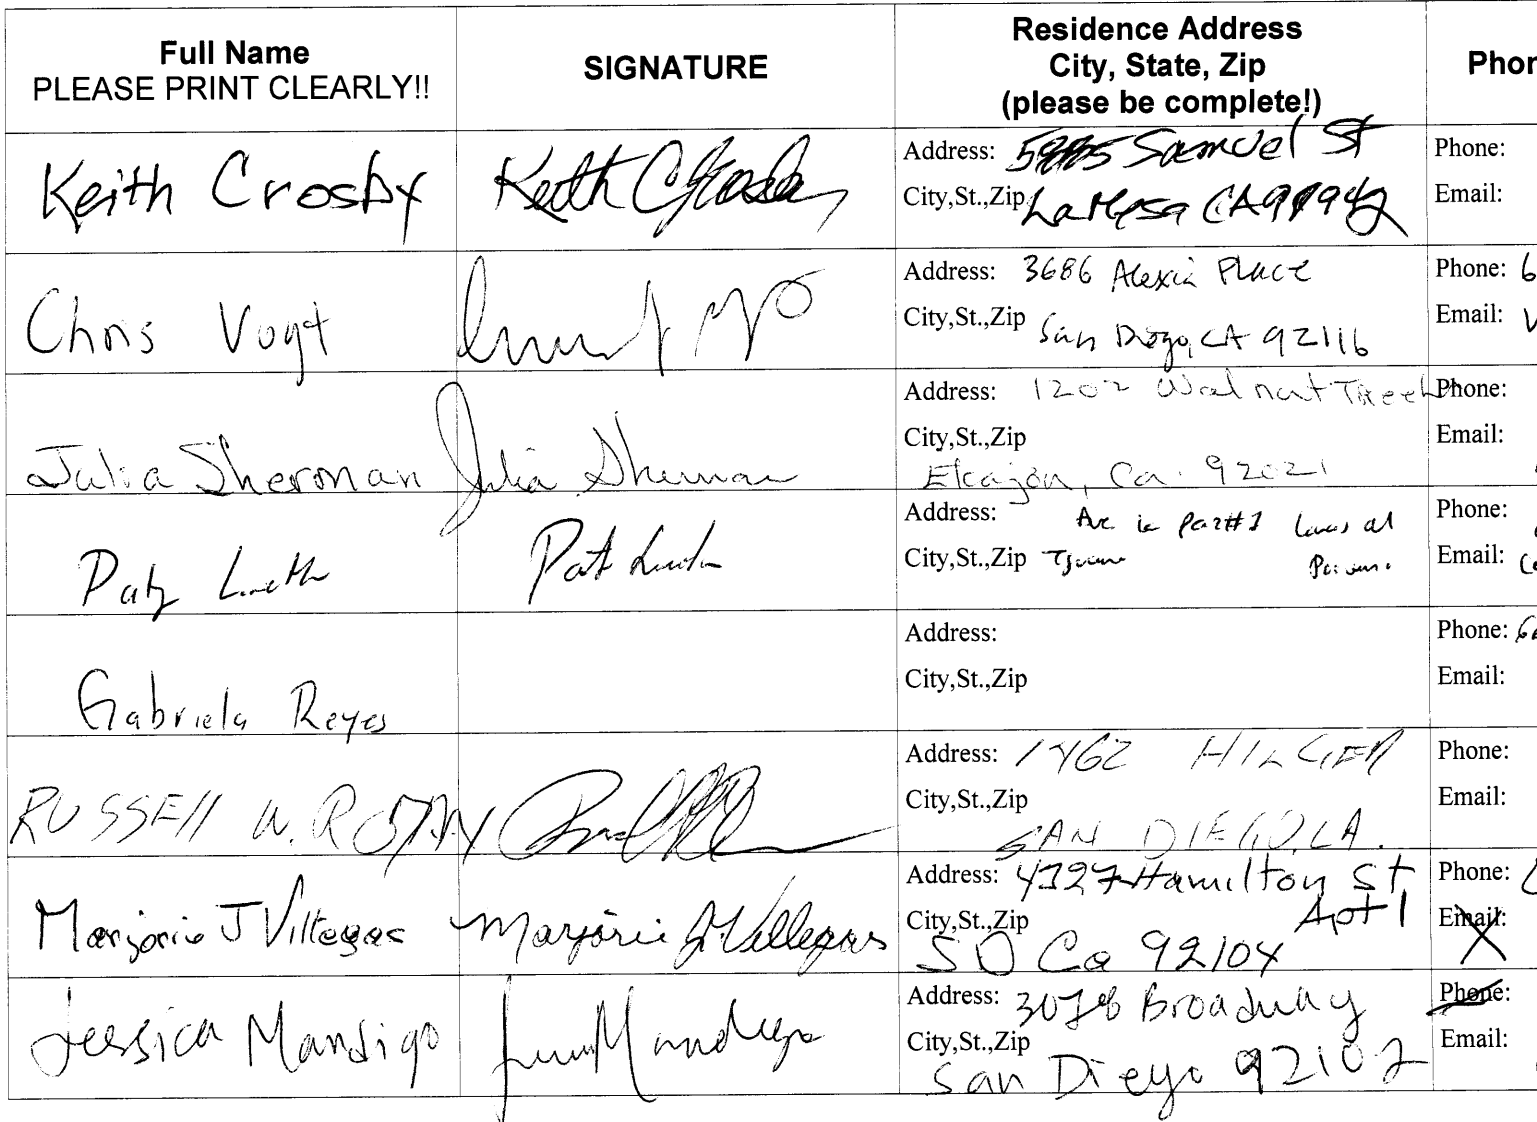 Full Name
PLEASE PRINT CLEARLY!!
SIGNATURE
Residence Address
City, State, Zip
(please be complete!)
Phon
Keith Crosby
Keith Crosby
Address: Samuel St
City,St.,Zip La Mesa CA
Phone:
Email:
Chris Vogt
Address: 3686 Alexia Place
City,St.,Zip San Diego, CA 92116
Phone: 6
Email: V
Julia Sherman
Julia Sherman
Address: 1202 Walnut
City,St.,Zip
Elcajon, Ca. 92021
Phone:
Email:
Pat
Address: in part #1
City,St.,Zip
Phone:
Email:
Gabriela Reyes
Address:
City,St.,Zip
Phone:
Email:
RUSSEll W.
Address: HILGER
City,St.,Zip
SAN DIEGO, CA.
Phone:
Email:
Marjorie J Villegas
Marjorie J. Villegas
Address: Hamilton St
Apt 1
City,St.,Zip
SD Ca 92104
Phone:
Email:
Jessica Mandigo
Address: Broadway
City,St.,Zip
San Diego 92102
Phone:
Email: